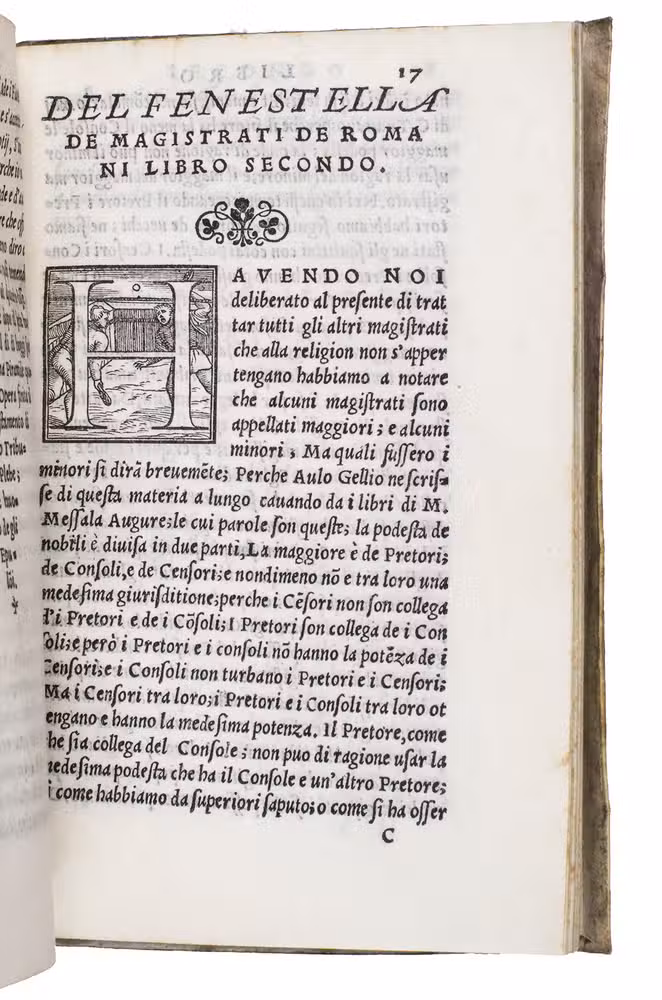 17
DEL FENESTELLA
DE MAGISTRATI DE ROMA
NI LIBRO SECONDO.
HAVENDO NOI
deliberato al preſente di trat
tar tutti gli altri magiſtrati
che alla religion non s'apper
tengano habbiamo a notare
che alcuni magiſtrati ſono
appellati maggiori; e alcuni
minori; Ma quali fuſſero i
minori ſi dirà breuemēte; Perche Aulo Gellio ne ſcriſ-
ſe di queſta materia a lungo cauando da i libri di M.
Meſſala Augure; le cui parole ſon queſte; la podeſta de
nobili è diuiſa in due parti, La maggiore è de Pretori;
de Conſoli, e de Cenſori; e nondimeno nō e tra loro una
medeſima giuriſditione; perche i Cēſori non ſon collega
d'i Pretori e de i Cōſoli; I Pretori ſon collega de i Con
ſoli; e però i Pretori e i conſoli nō hanno la potēza de i
Cenſori; e i Conſoli non turbano i Pretori e i Cenſori;
Ma i Cenſori tra loro; i Pretori e i Conſoli tra loro ot
engano e hanno la medeſima potenza. Il Pretore, come
he ſia collega del Conſole; non puo di ragione uſar la
medeſima podeſta che ha il Conſole e un'altro Pretore;
i come habbiamo da ſuperiori ſaputo; o come ſi ha oſſer
C